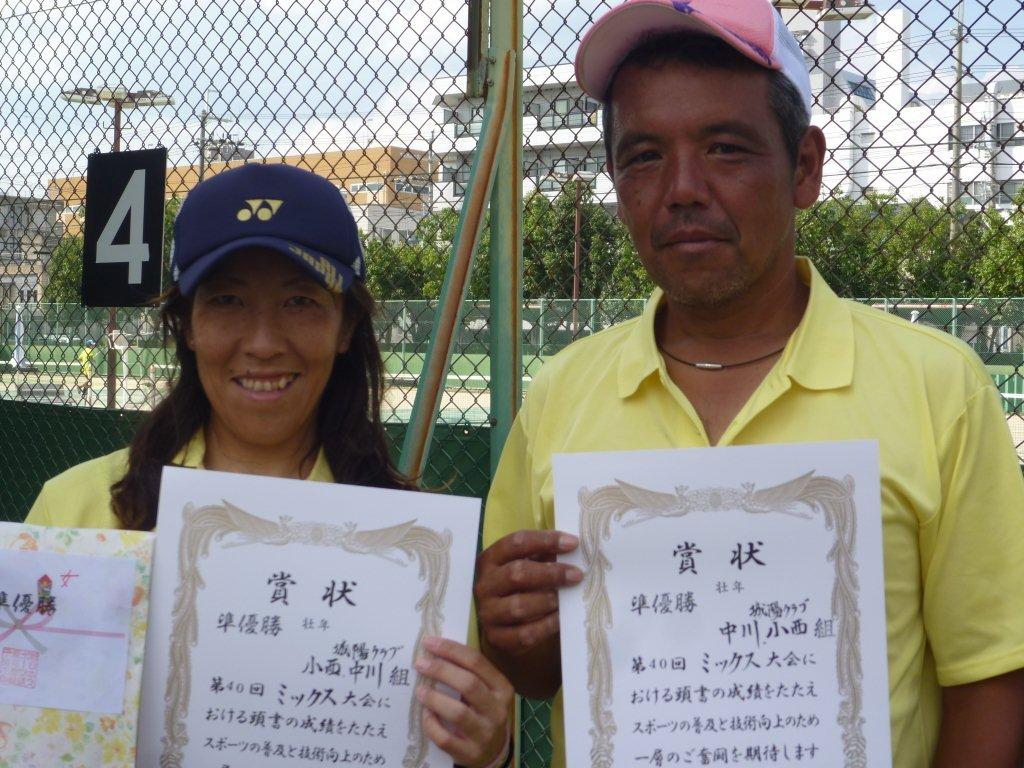 4
準優勝
賞状
準優勝 壮年
城陽クラブ
小西.中川 組
第40回 ミックス大会に
おける頭書の成績をたたえ
スポーツの普及と技術向上のため
賞状
準優勝 壮年
城陽クラブ
中川.小西 組
第40回 ミックス大会に
おける頭書の成績をたたえ
スポーツの普及と技術向上のため
一層のご奮闘を期待します